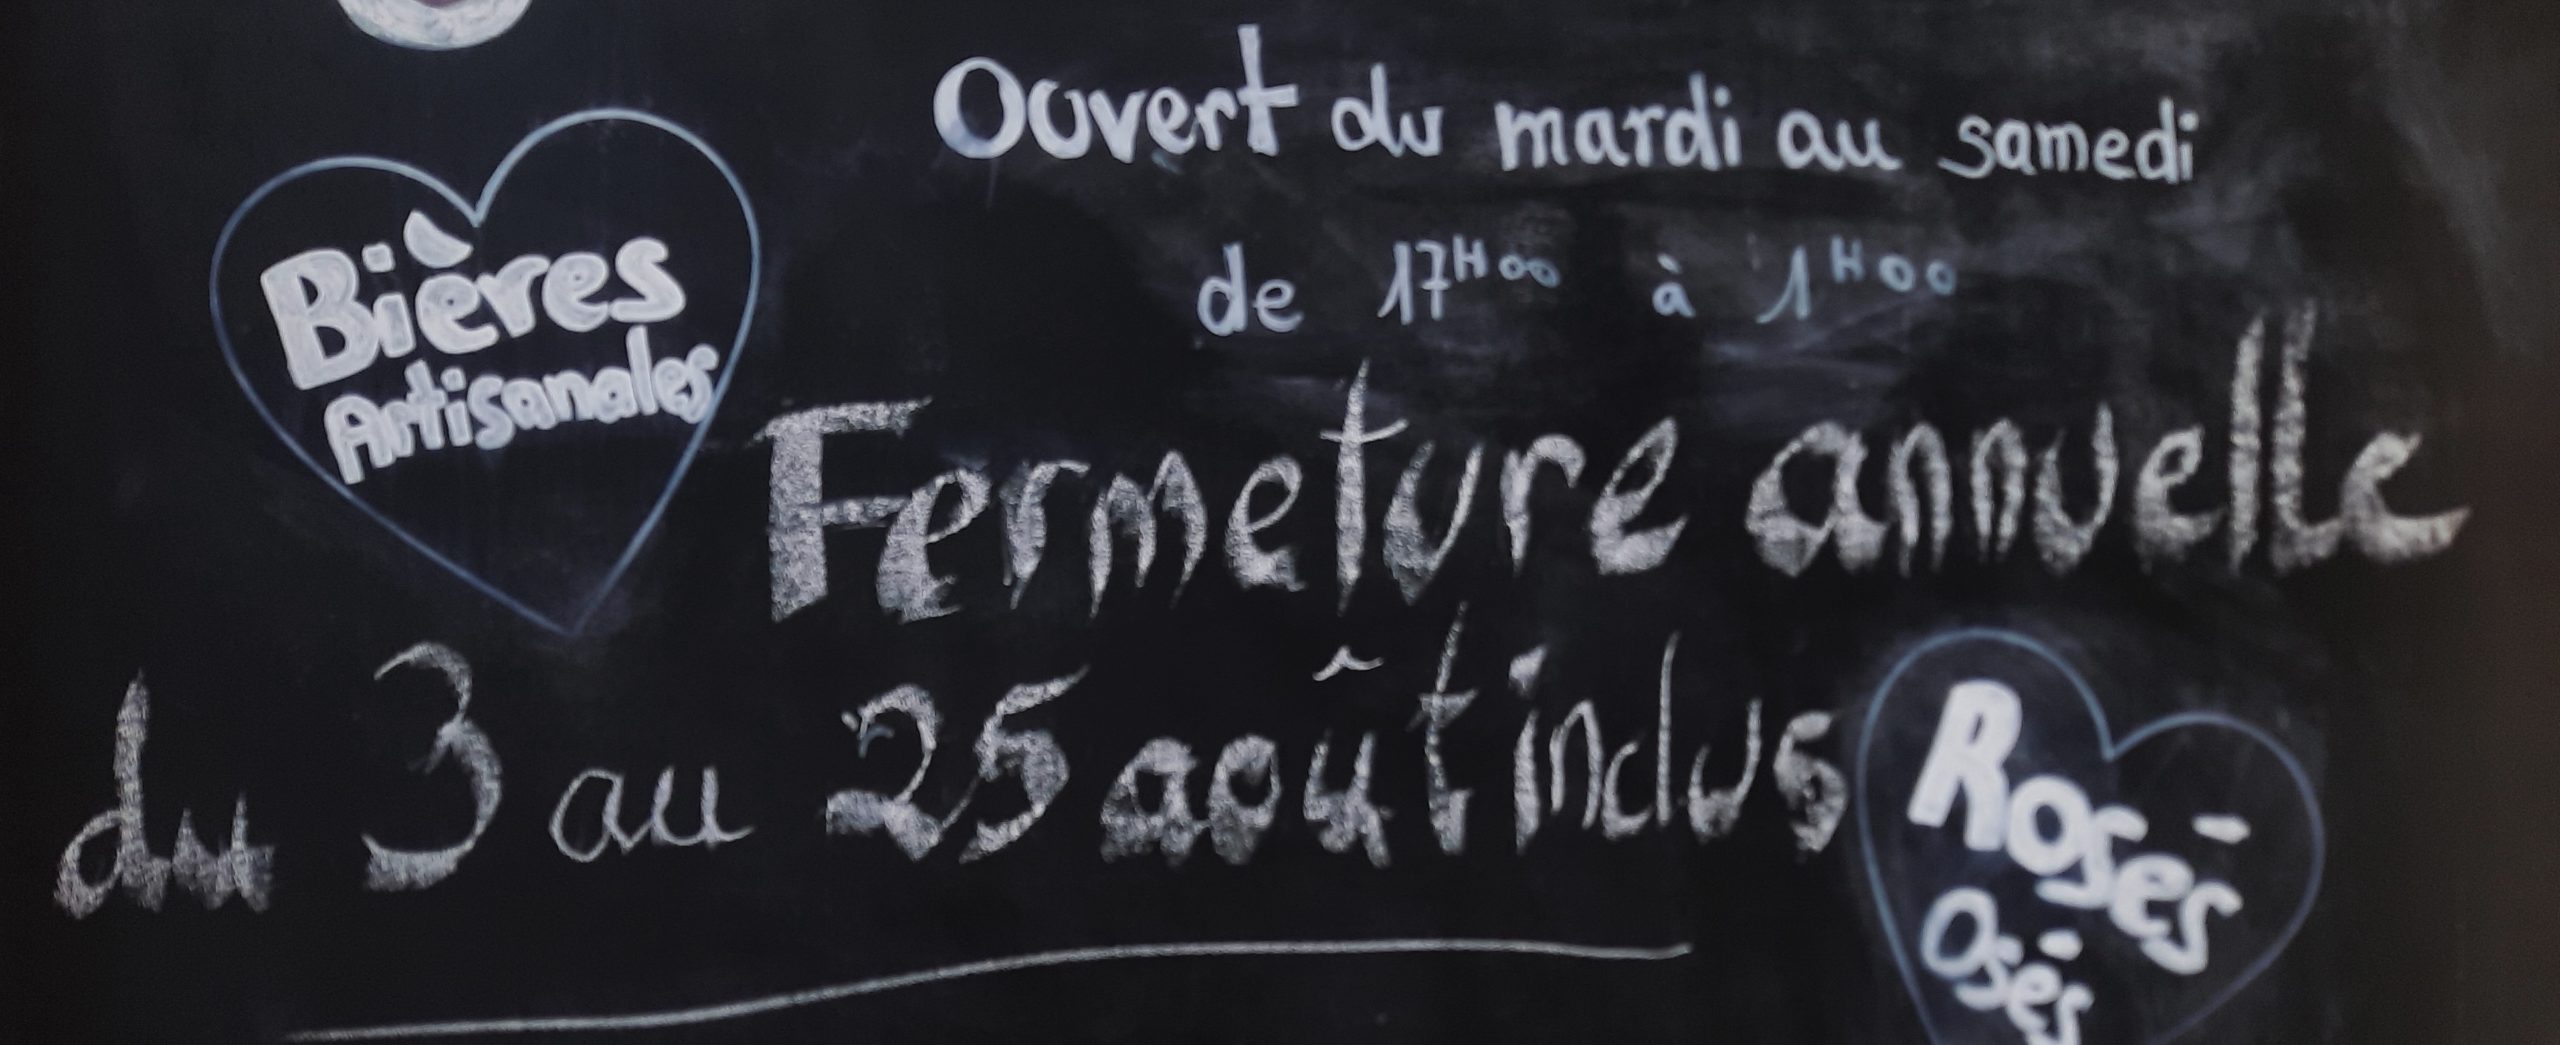 Ouvert du mardi au samedi
de 17H00 à 1H00
Bières
Artisanales
Fermeture annuelle
du 3 au 25 août inclus
Rosés
Osés